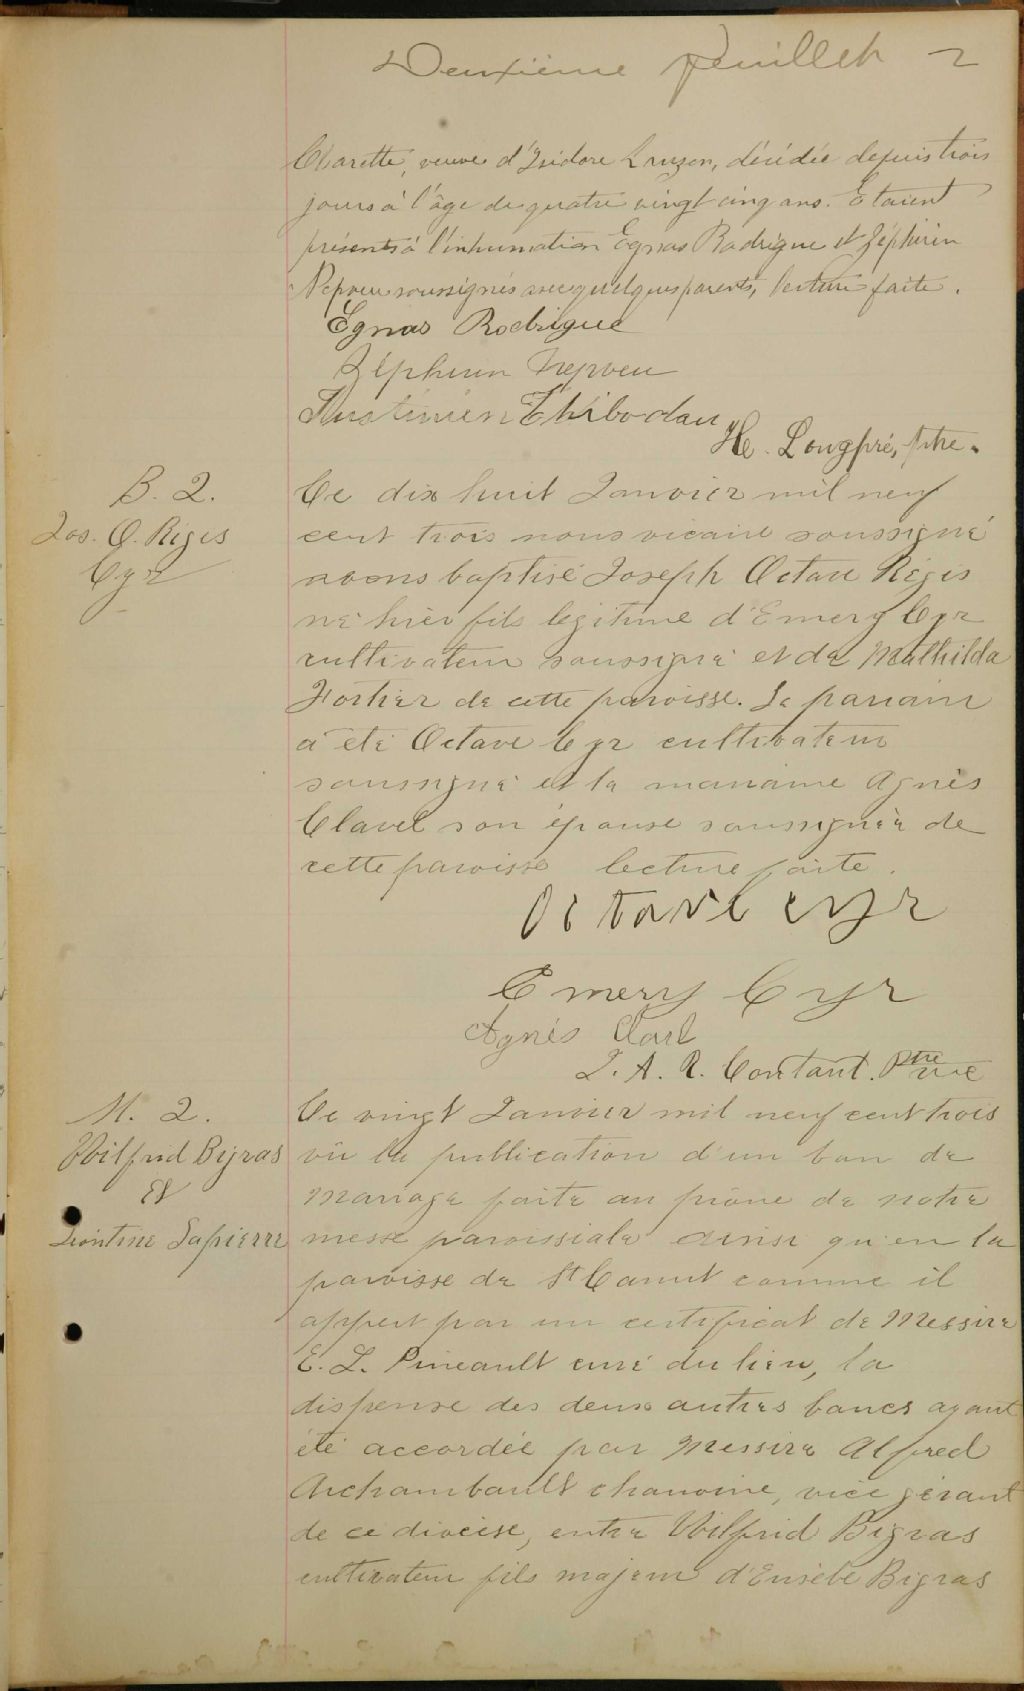 Deuxième feuillet 2
Charette, veuve d'Isidore Lauzon, décédée depuis trois
jours à l'âge de quatre vingt cinq ans. Etaient
présents à l'inhumation Egnas Rodrigue et Zéphirin
Nepveu soussignés avec quelques parents, lecture faite.
Égnas Rodrigue
Zéphirin Nepveu
Justinien Thibodau
H. Longpré, ptre.
B. 2.
Jos. O. Régis
Cyr
Ce dix huit Janvier mil neuf
cent trois nous vicaire soussigné
avons baptisé Joseph Octave Régis
né hier fils légitime d'Emery Cyr
cultivateur soussigné et de Mathilda
Fortier de cette paroisse. Le parrain
a été Octave Cyr cultivateur
soussigné et la marraine Agnès
Clavel son épouse soussignée de
cette paroisse lecture faite.
Octave cyr
Emery Cyr
Agnès
J. A. R. Contant. Ptre vic
M. 2.
Wilfrid Bigras
Et
Léontine Lapierre
Ce vingt Janvier mil neuf cent trois
vû la publication d'un ban de
mariage faite au prône de notre
messe paroissiale ainsi qu'en la
paroisse de St Canut comme il
appert par un certificat de Messire
E. L. Pineault curé du lieu, la
dispense des deux autres bancs ayant
été accordée par Messire Alfred
Archambault chanoine, vice gérant
de ce diocèse, entre Wilfrid Bigras
cultivateur fils majeur d'Eusèbe Bigras